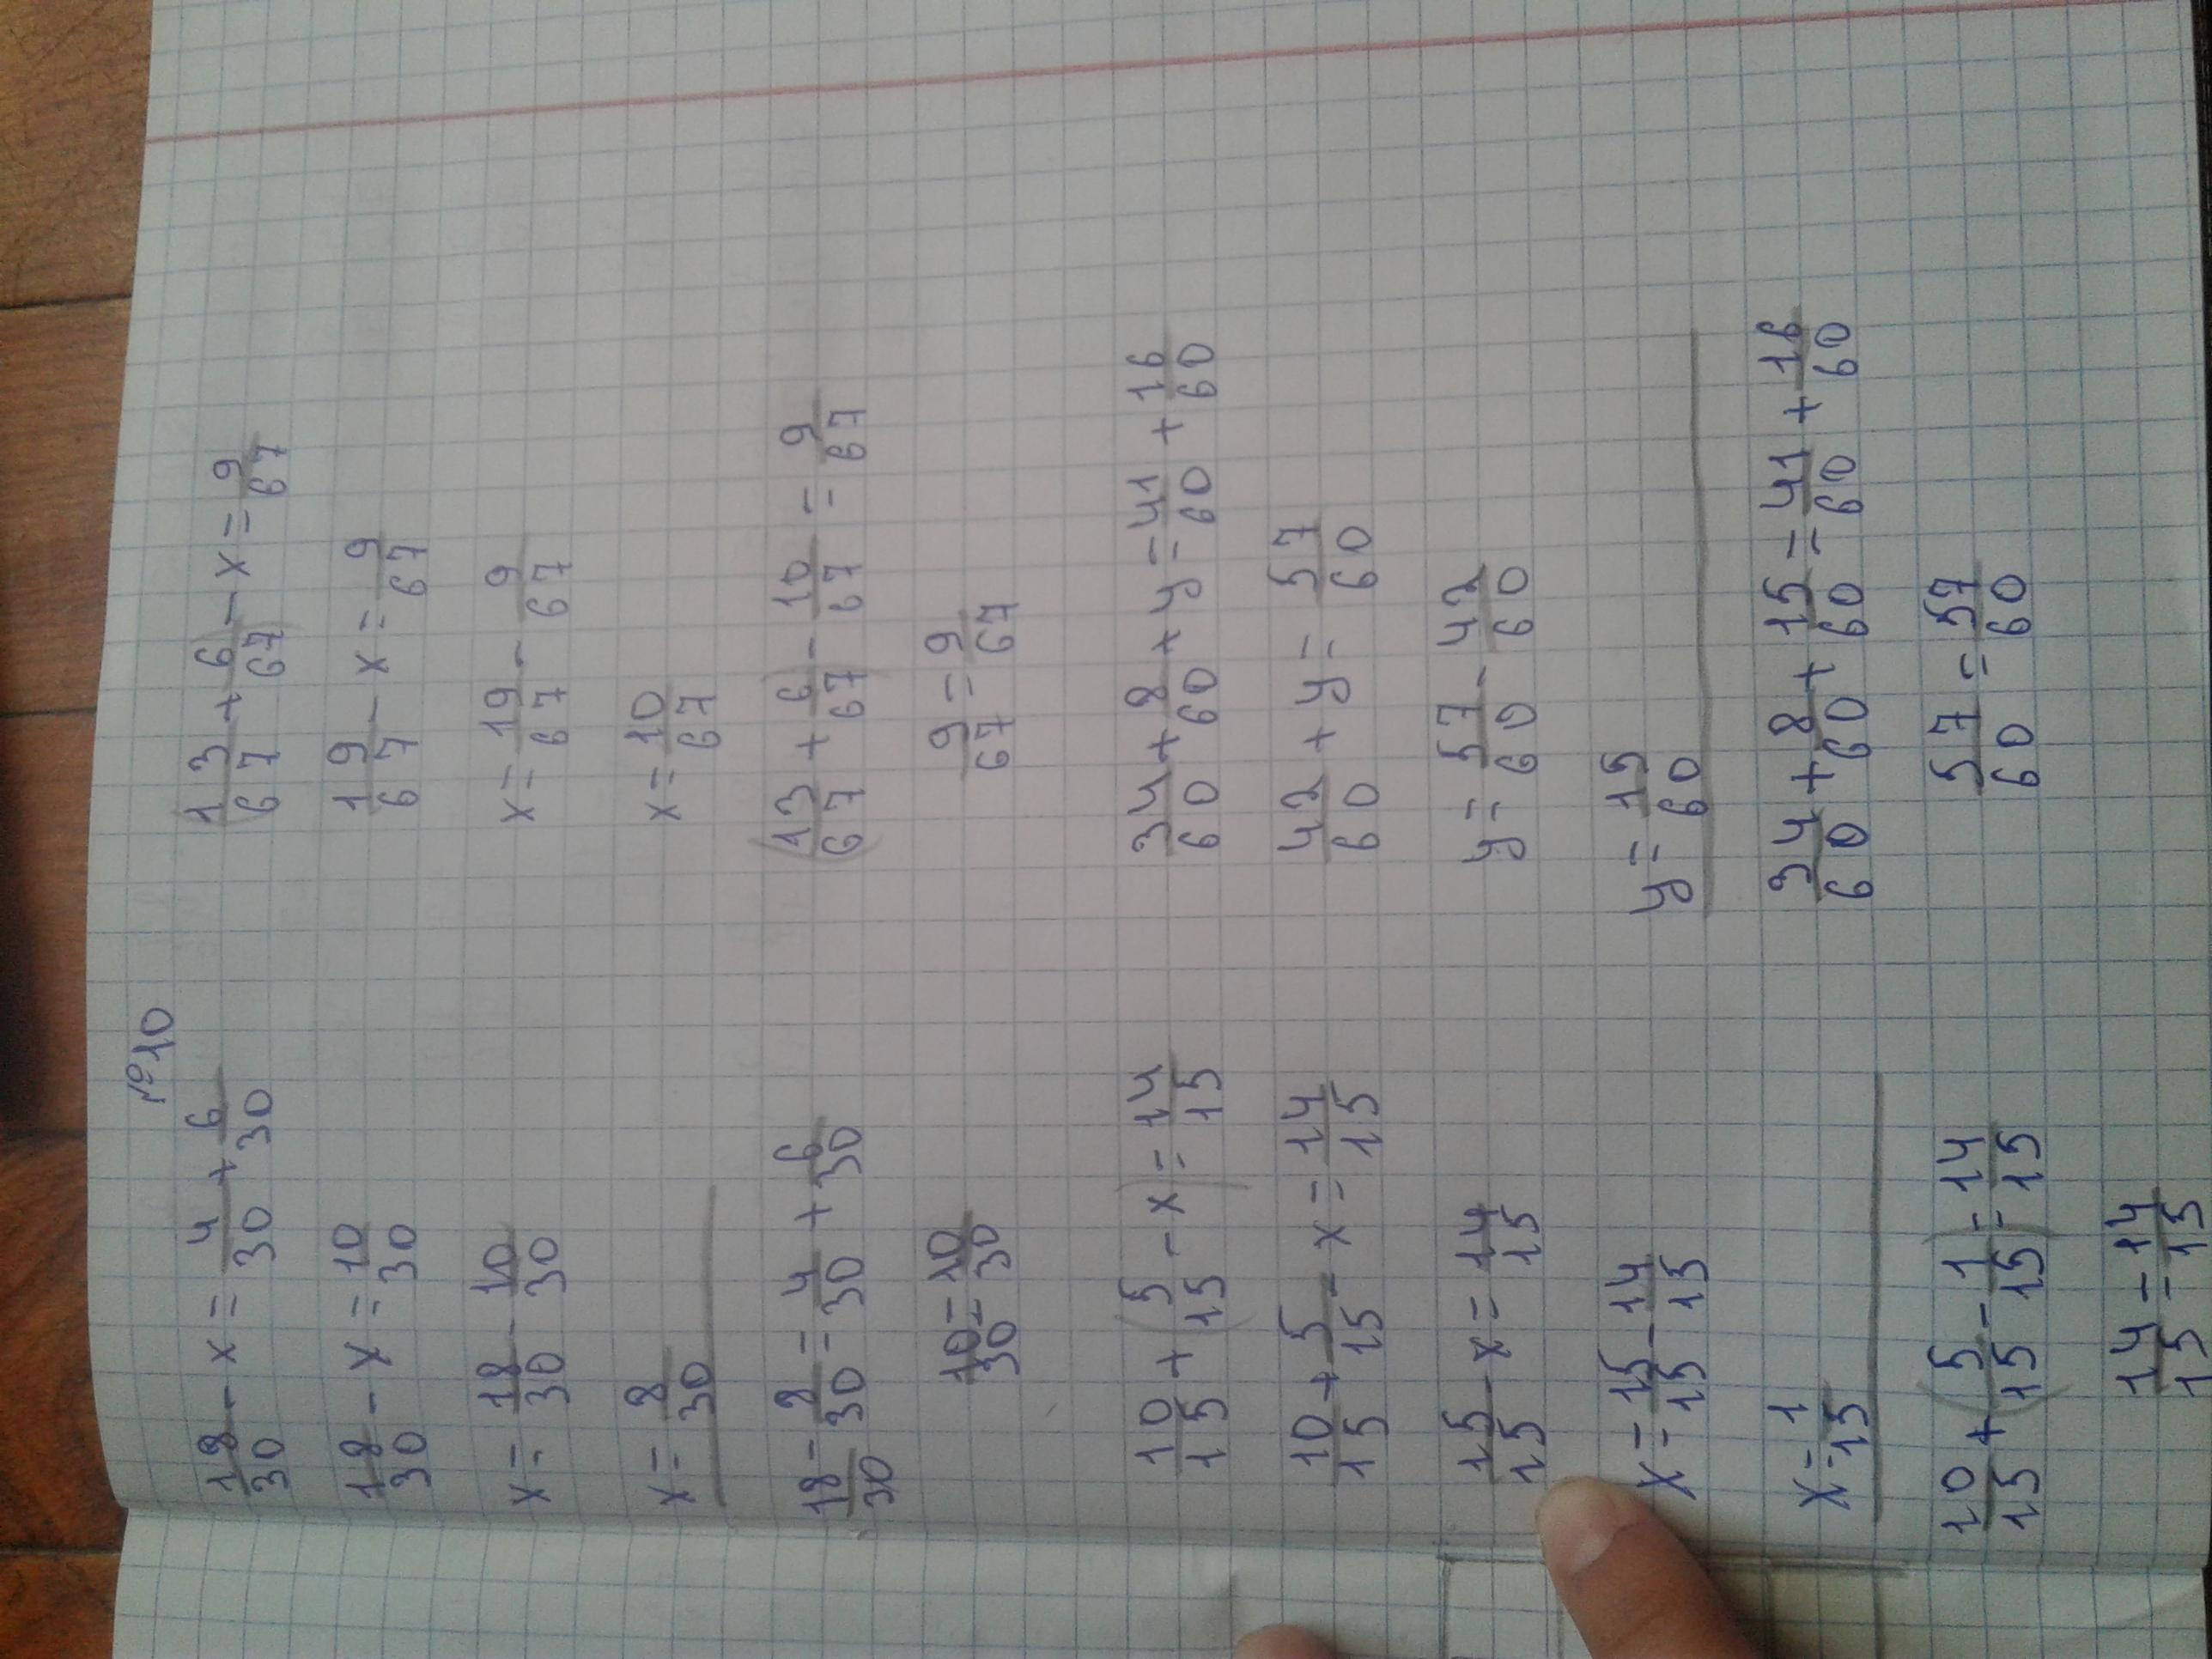 №10
18/30 - x = 4/30 + 6/30
18/30 - x = 10/30
x = 18/30 - 10/30
x = 8/30
18/30 - 8/30 = 4/30 + 6/30
10/30 = 10/30
10/15 + (5/15 - x) = 14/15
10/15 + 5/15 - x = 14/15
15/15 - x = 14/15
x = 15/15 - 14/15
x = 1/15
10/15 + (5/15 - 1/15) = 14/15
14/15 = 14/15
(13/67 + 6/67) - x = 9/67
19/67 - x = 9/67
x = 19/67 - 9/67
x = 10/67
(13/67 + 6/67) - 10/67 = 9/67
9/67 = 9/67
34/60 + 8/60 + y = 41/60 + 16/60
42/60 + y = 57/60
y = 57/60 - 42/60
y = 15/60
34/60 + 8/60 + 15/60 = 41/60 + 16/60
57/60 = 57/60